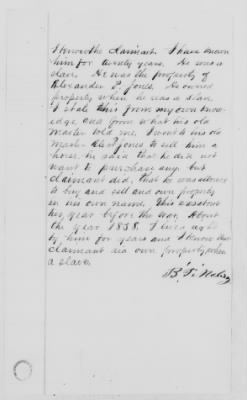 I know the claimant. I have known
him for twenty years. He was a
slave. He was the property of
Alexander P. Jones. He owned
property when he was a slave.
I state this from my own know-
ledge and from what his old
master told me. I went to his old
master Jones to sell him a
horse. he said that he did not
want to purchase any. but
claimant did, that he was allowed
to buy and sell and own property
in his own name. This was about
year before the war. About
the year 1858. I lived right
by him for years and I know that
claimant did own property when
a slave